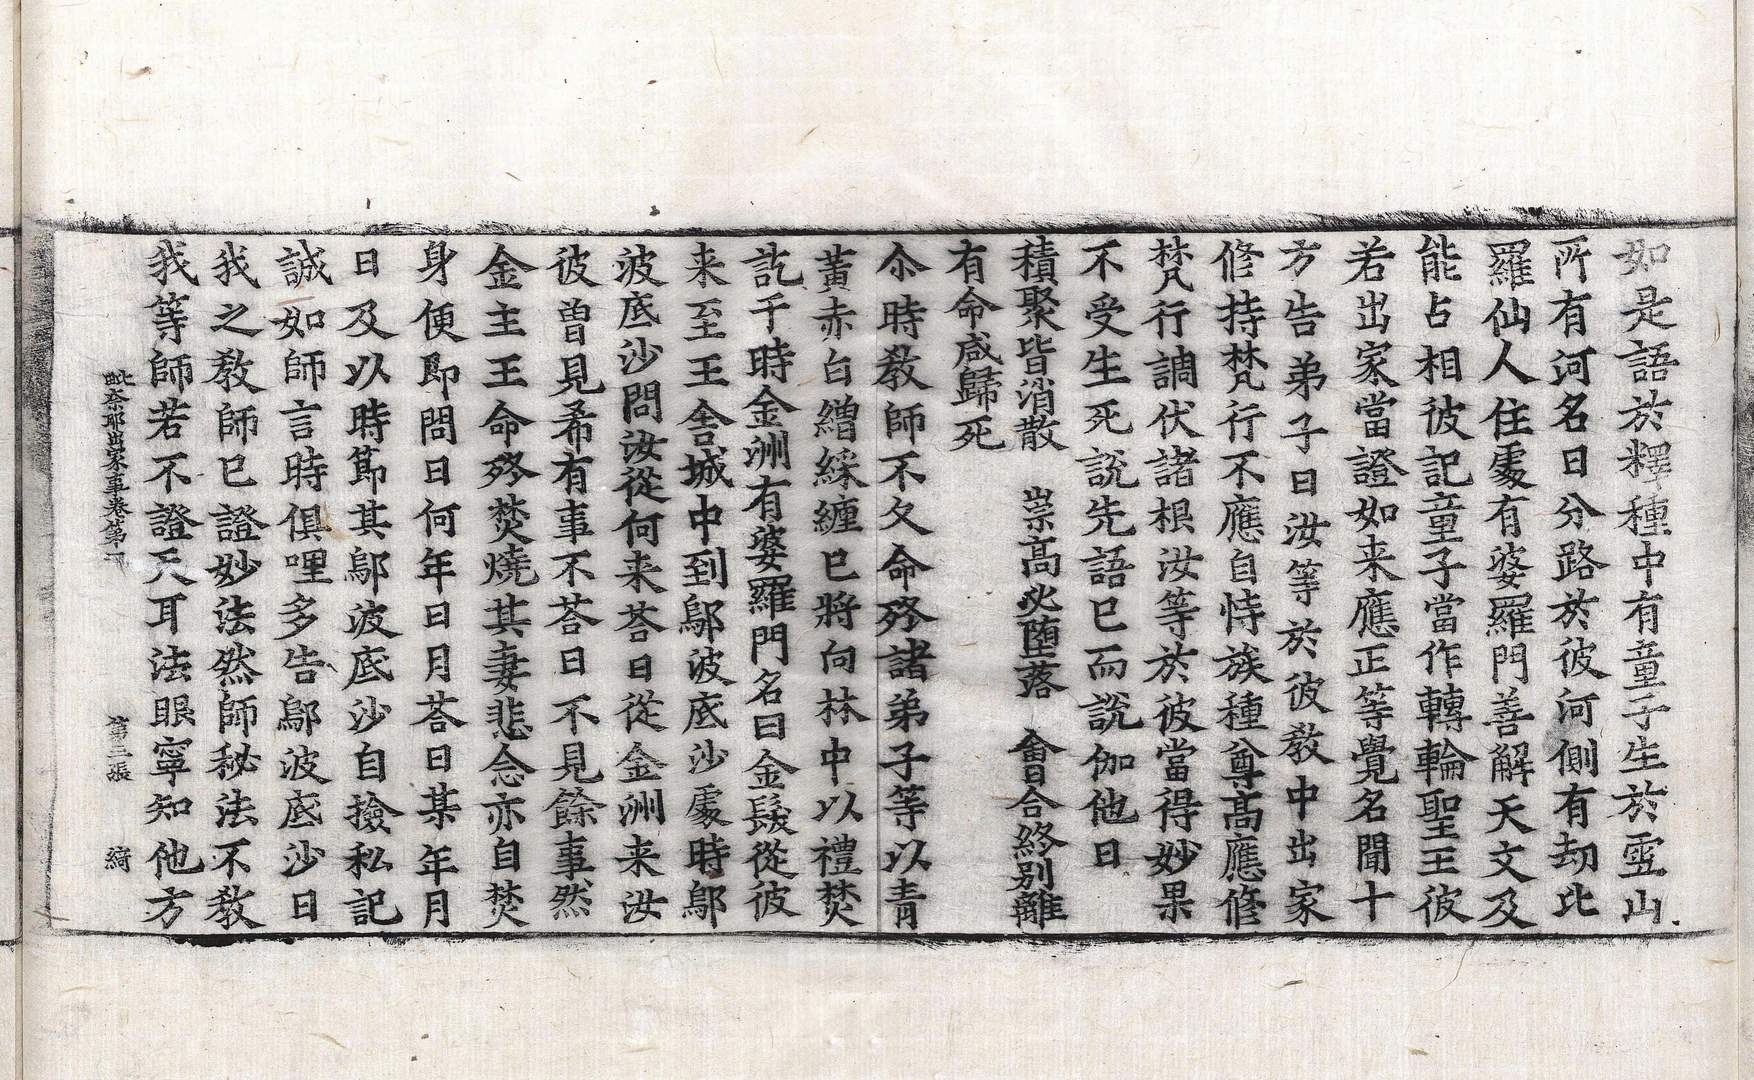 如是語於釋種中有童子生於雪山
所有河名曰分路於彼河側有劫比
羅仙人住處有婆羅門善解天文及
能占相彼記童子當作轉輪聖王彼
若出家當證如来應正等覺名聞十
方告弟子曰汝等於彼教中出家
修持梵行不應自恃族種尊高應修
梵行調伏諸根汝等於彼當得妙果
不受生死說先語已而說伽他曰
積聚皆消散　崇高必墮落　會合終別離
有命咸歸死
尒時教師不久命終諸弟子等以青
黃赤白繒綵纏已將向林中以禮焚
訖千時金洲有婆羅門名曰金髮從彼
来至王舍城中到鄔波底沙處時鄔
波底沙問汝從何来荅曰從金洲来汝
彼曾見希有事不荅曰不見餘事然
金主王命終焚燒其妻悲念亦自焚
身便即問曰何年日月荅曰某年月
日及以時節其鄔波底沙自撿私記
誠如師言時俱哩多告鄔波底沙曰
我之教師已證妙法然師秘法不教
我等師若不證天耳法眼寧知他方
毗奈耶出家事卷第一　第三張　綺